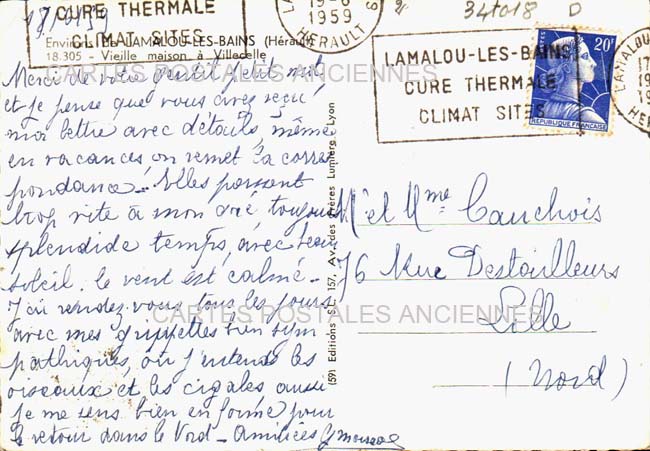 CURE THERMALE
CLIMAT SITES
19-8
1959
HERAULT
34to18 D
17/8/59
Environs de LAMALOU-LES-BAINS (Hérault)
18.305 - Vieille maison à Villecelle
LAMALOU-LES-BAINS
CURE THERMALE
CLIMAT SITES
20F
REPUBLIQUE FRANÇAISE
LAMALOU
HER
CARTES POSTALES ANCIENNES
Merci de votre petit mot
et je pense que vous avez reçu
ma lettre avec détails, même
en vacances on remet sa corres
pondance. Elles passent
trop vite à mon gré, toujours
splendide temps, avec beau
soleil. le vent est calmé.
J'ai rendez-vous tous les jours
avec mes grippettes bien sym
pathiques, où j'entends les
oiseaux et les cigales aussi
je me sens bien en forme pour
le retour dans le Nord - Amitiés
(59) Editions "S.L." 157, Av. des Frères Lumière - Lyon
M. et Mme Cauchois
76 Rue Destailleurs
Lille
(Nord)
CARTES POSTALES ANCIENNES